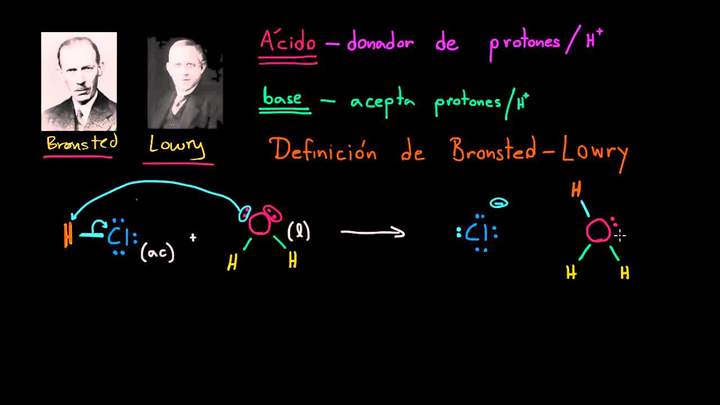 Ácido – donador de protones/H⁺
base – acepta protones/H⁺
Bronsted Lowry
Definición de Bronsted–Lowry
H–Cl (ac) + O (l) → Cl ⊖ H O
H H H H